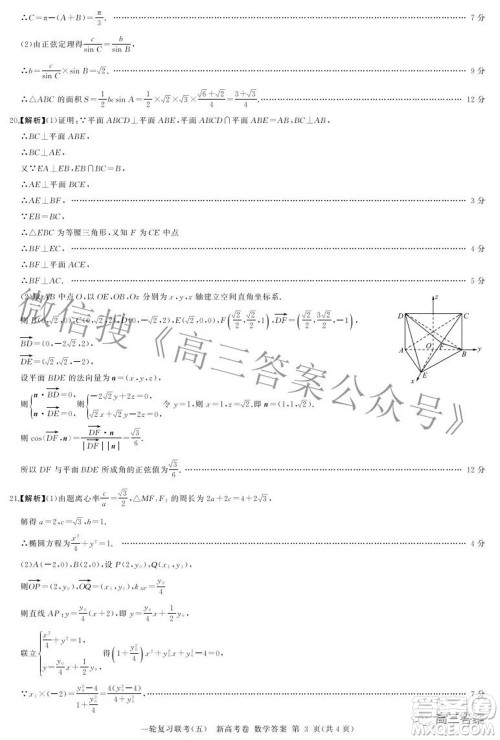 ∴C=π-(A+B)=π/3. 7分
(2)由正弦定理得 c/sin C=b/sin B,
∴b=c/sin C×sin B=√2. 9分
∴△ABC的面积S=1/2 bcsin A=1/2×√2×√3×(√6+√2)/4=(3+√3)/4. 12分
20.【解析】(1)证明:∵平面ABCD⊥平面ABE,平面ABCD∩平面ABE=AB,BC⊥AB,
∴BC⊥平面ABE,
∴BC⊥AE.
又∵EA⊥EB,EB∩BC=B,
∴AE⊥平面EBC,
∴AE⊥BF, 3分
∵EB=BC,
∴△EBC为等腰三角形,又∵F为CE中点
∴BF⊥EC,
∴BF⊥平面ACE,
∴BF⊥AC. 5分
AB中点O,以OE,OB,Oz分别为x,y,z轴建立空间直角坐标系.
DF=(√2/2,3√2/2,-1),
BD=(0,-2√2,2),
DE=(√2,√2,-2),
设平面BDE的法向量为n=(x,y,z),
则{n·BD=0, n·DE=0, 则{-2√2y+2z=0, √2x+√2y-2z=0, 令y=1,则x=1,z=√2,即n=(1,1,√2).
则cos⟨DF,n⟩=DF·n/|DF||n|=√3/6.
所以DF与平面BDE所成角的正弦值为√3/6. 12分
21.【解析】(1)由题离心率c/a=√3/2,△MF₁F₂的周长为2a+2c=4+2√3,
解得a=2,c=√3,b=1,
∴椭圆方程为x²/4+y²=1. 4分
(2)A(-2,0),B(2,0),设P(2,y₀),Q(x₁,y₁),
则OP=(2,y₀),OQ=(x₁,y₁),k_AP=y₀/4
则直线AP:y=y₀/4(x+2),即y=y₀/4 x+y₀/2,
联立{x²/4+y²=1, 得(1+y₀²/4)x²+y₀²x+y₀²-4=0,
一轮复习联考(五) 新高考卷 数学答案 第 3 页(共 4 页)
微信搜《高三答案公众号》